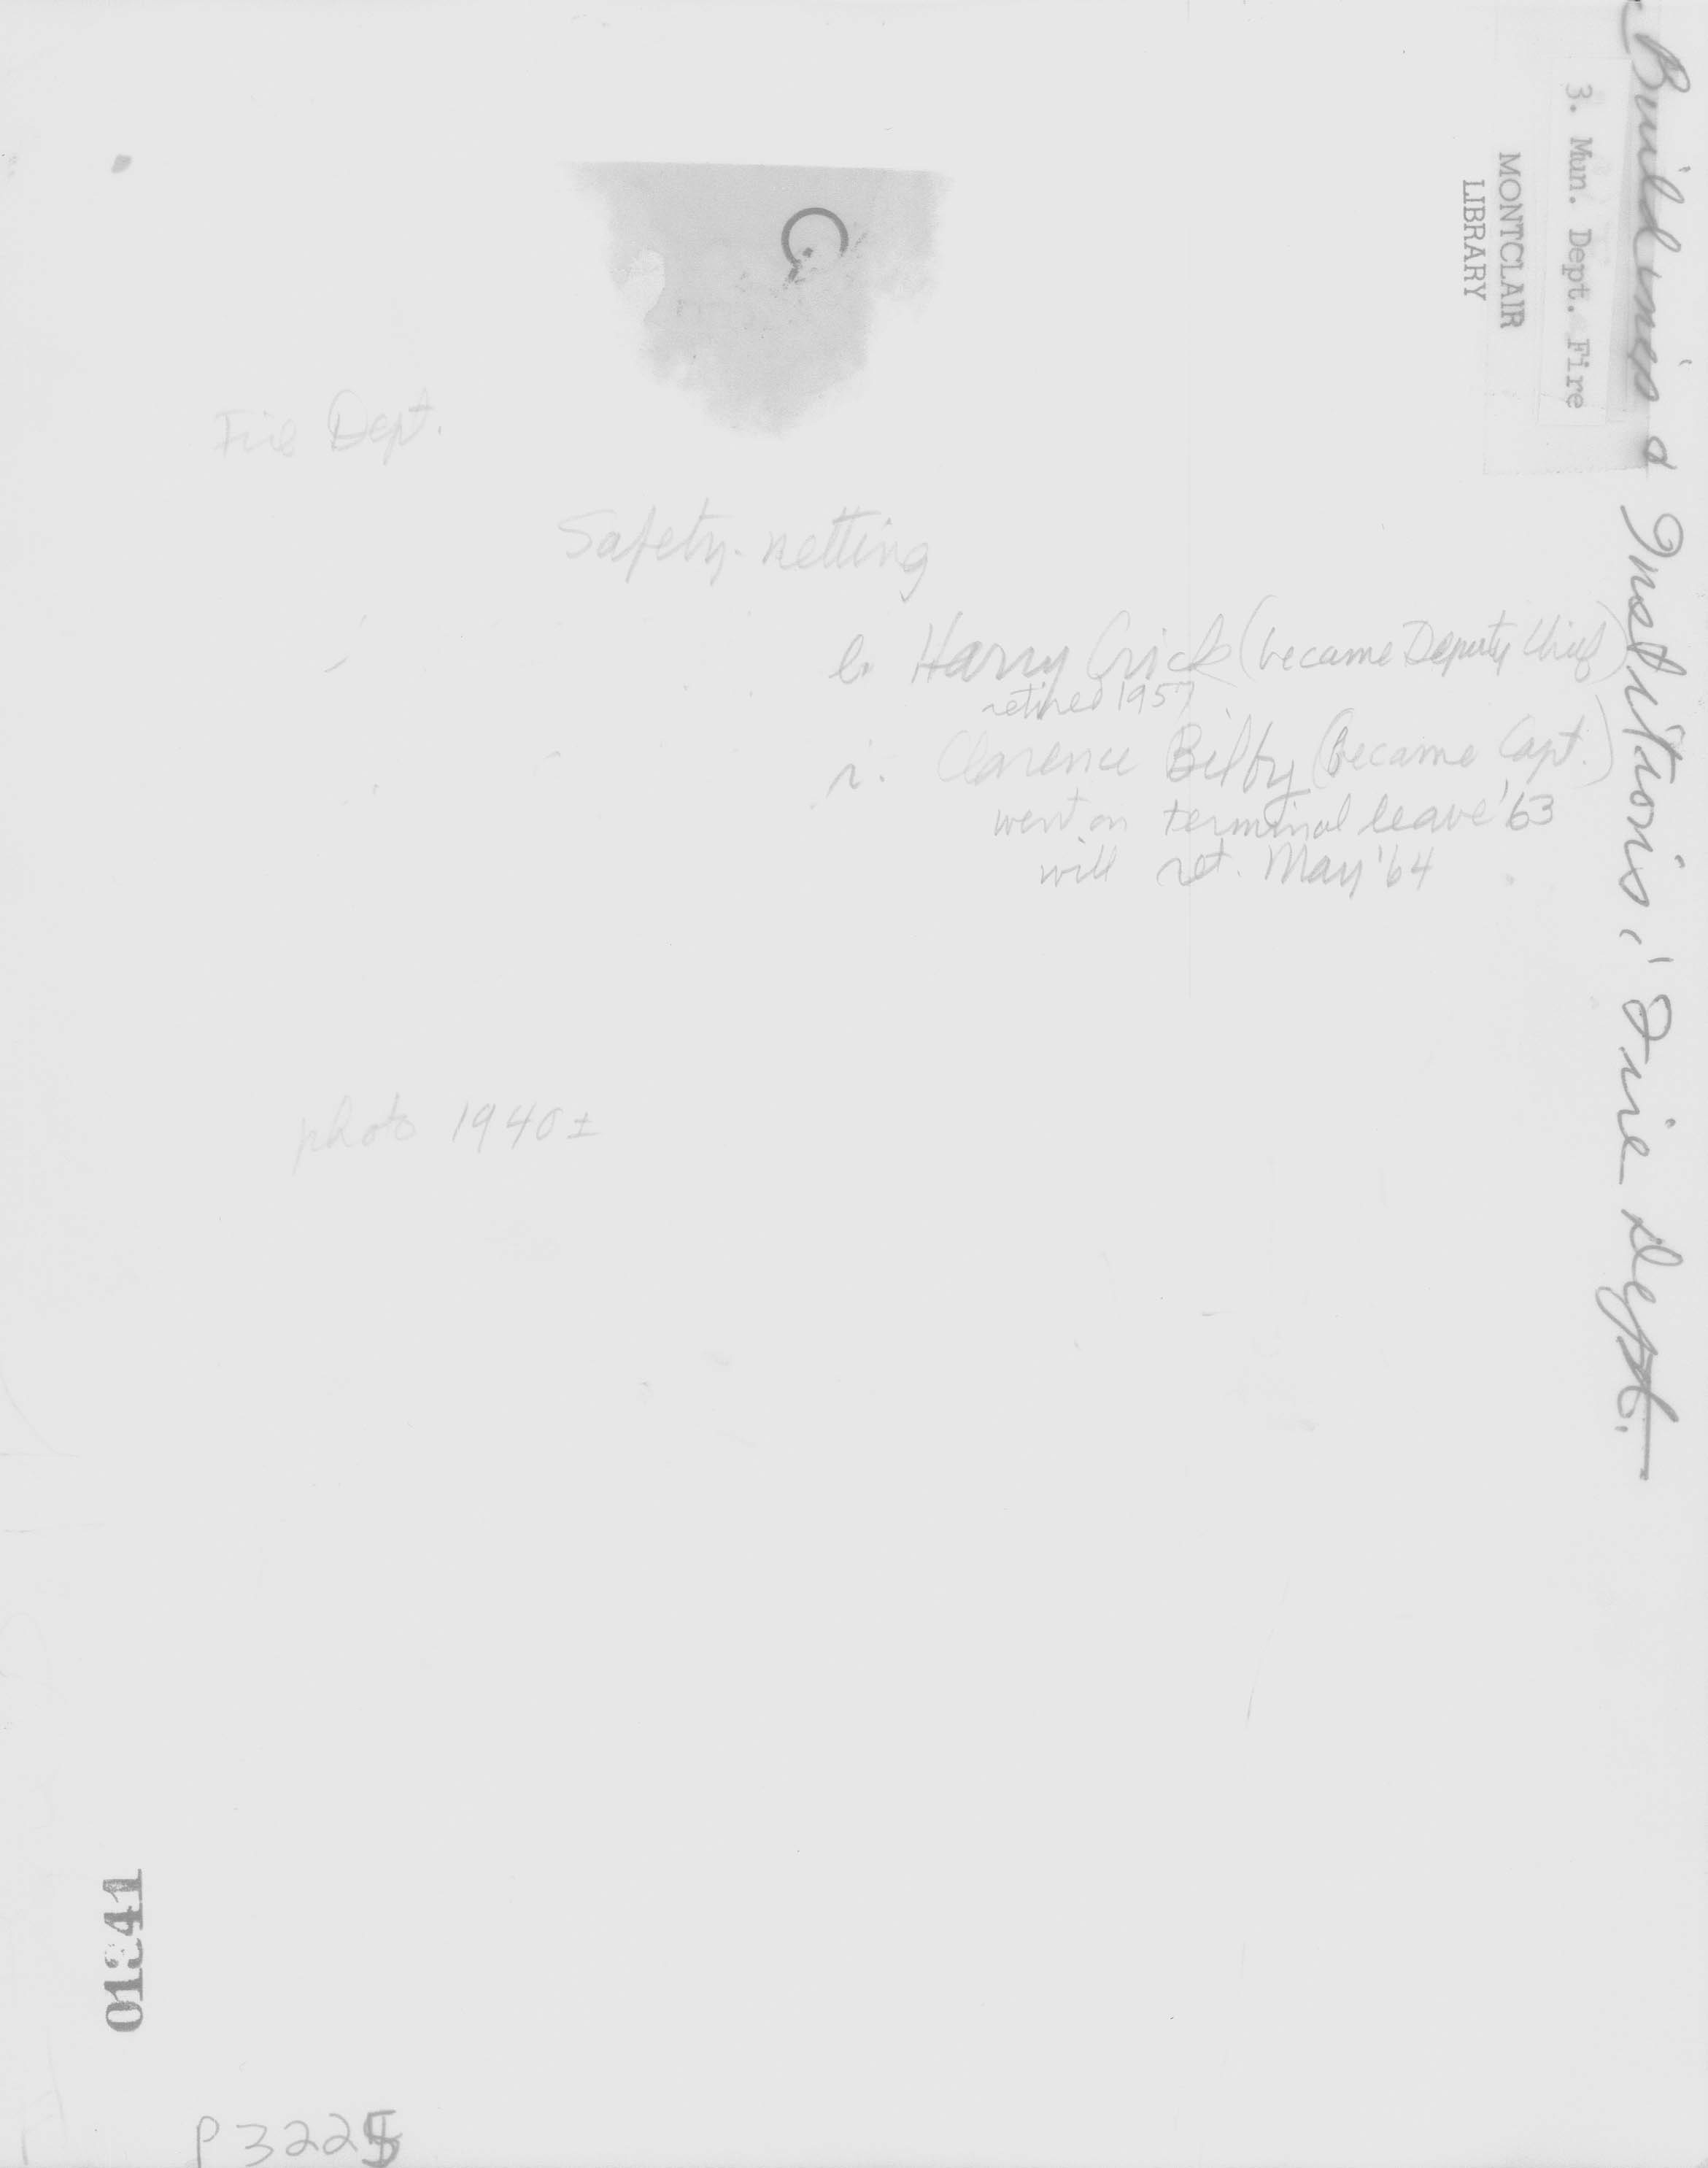 Buildings & Institutions, Fire Dept.
3. Mun. Dept. Fire
MONTCLAIR
LIBRARY
Fire Dept.
Safety-netting
l. Harry Crick (became Deputy Chief)
retired 1957
r. Clarence Bilby (became Capt.)
went on terminal leave '63
will ret. May '64
photo 1940±
01341
P3225